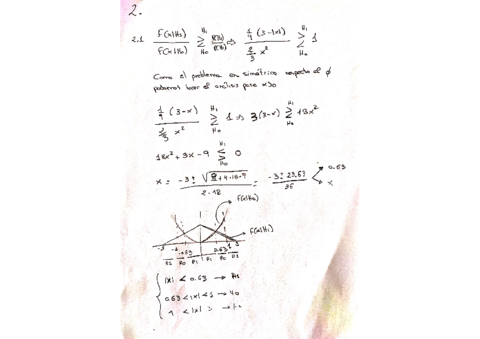 2.
2.1 f(x|H₁)/f(x|H₀) ≷ P(H₀)/P(H₁) ⇒ 1/9 (3-|x|) / (3/2 x²) ≷ 1
Como el problema es simétrico respecto al ϕ
podemos hacer el análisis para x>0
1/9 (3-x) / (3/2 x²) ≷ 1 ⇒ 3(3-x) ≷ 18x²
18x² + 3x - 9 ≶ 0
x = -3 ± √(9+4·18·9) / 2·18 = -3 ± 23.63 / 36 0.63 x
f(x|H₀)
f(x|H₁)
-3 -1 -0.63 0.63 1 3
R1 R0 R1 R1 R0 R1
|x| < 0.63 → H₁
0.63 < |x| < 1 → H₀
1 < |x| →